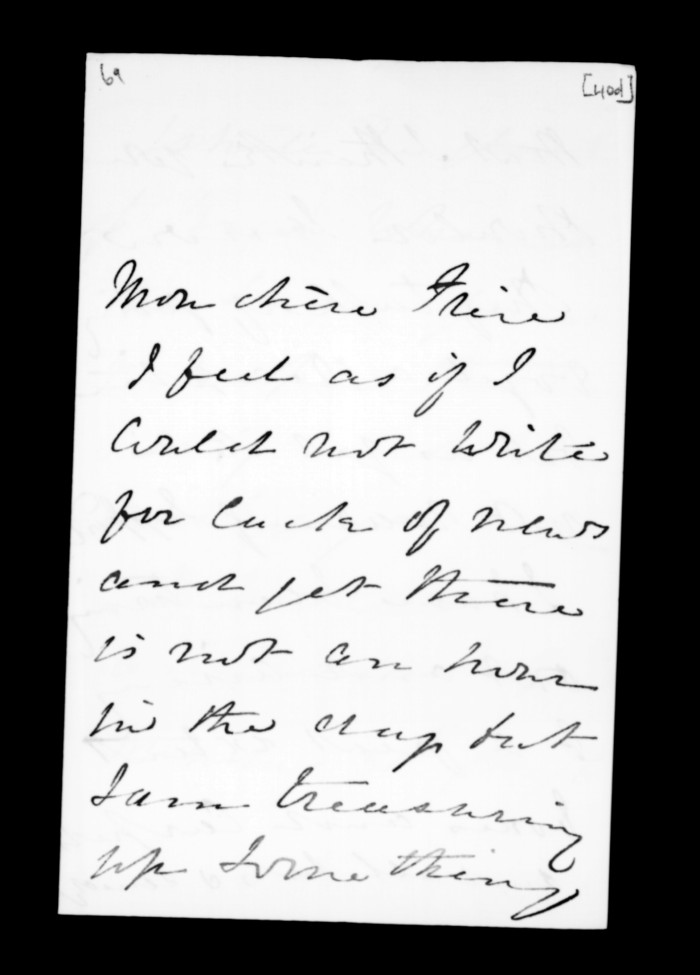 69 [40d]
Mon chère Frère
I feel as if I
could not write
for lack of news
and yet there
is not an hour
in the day but
I am treasuring
up something